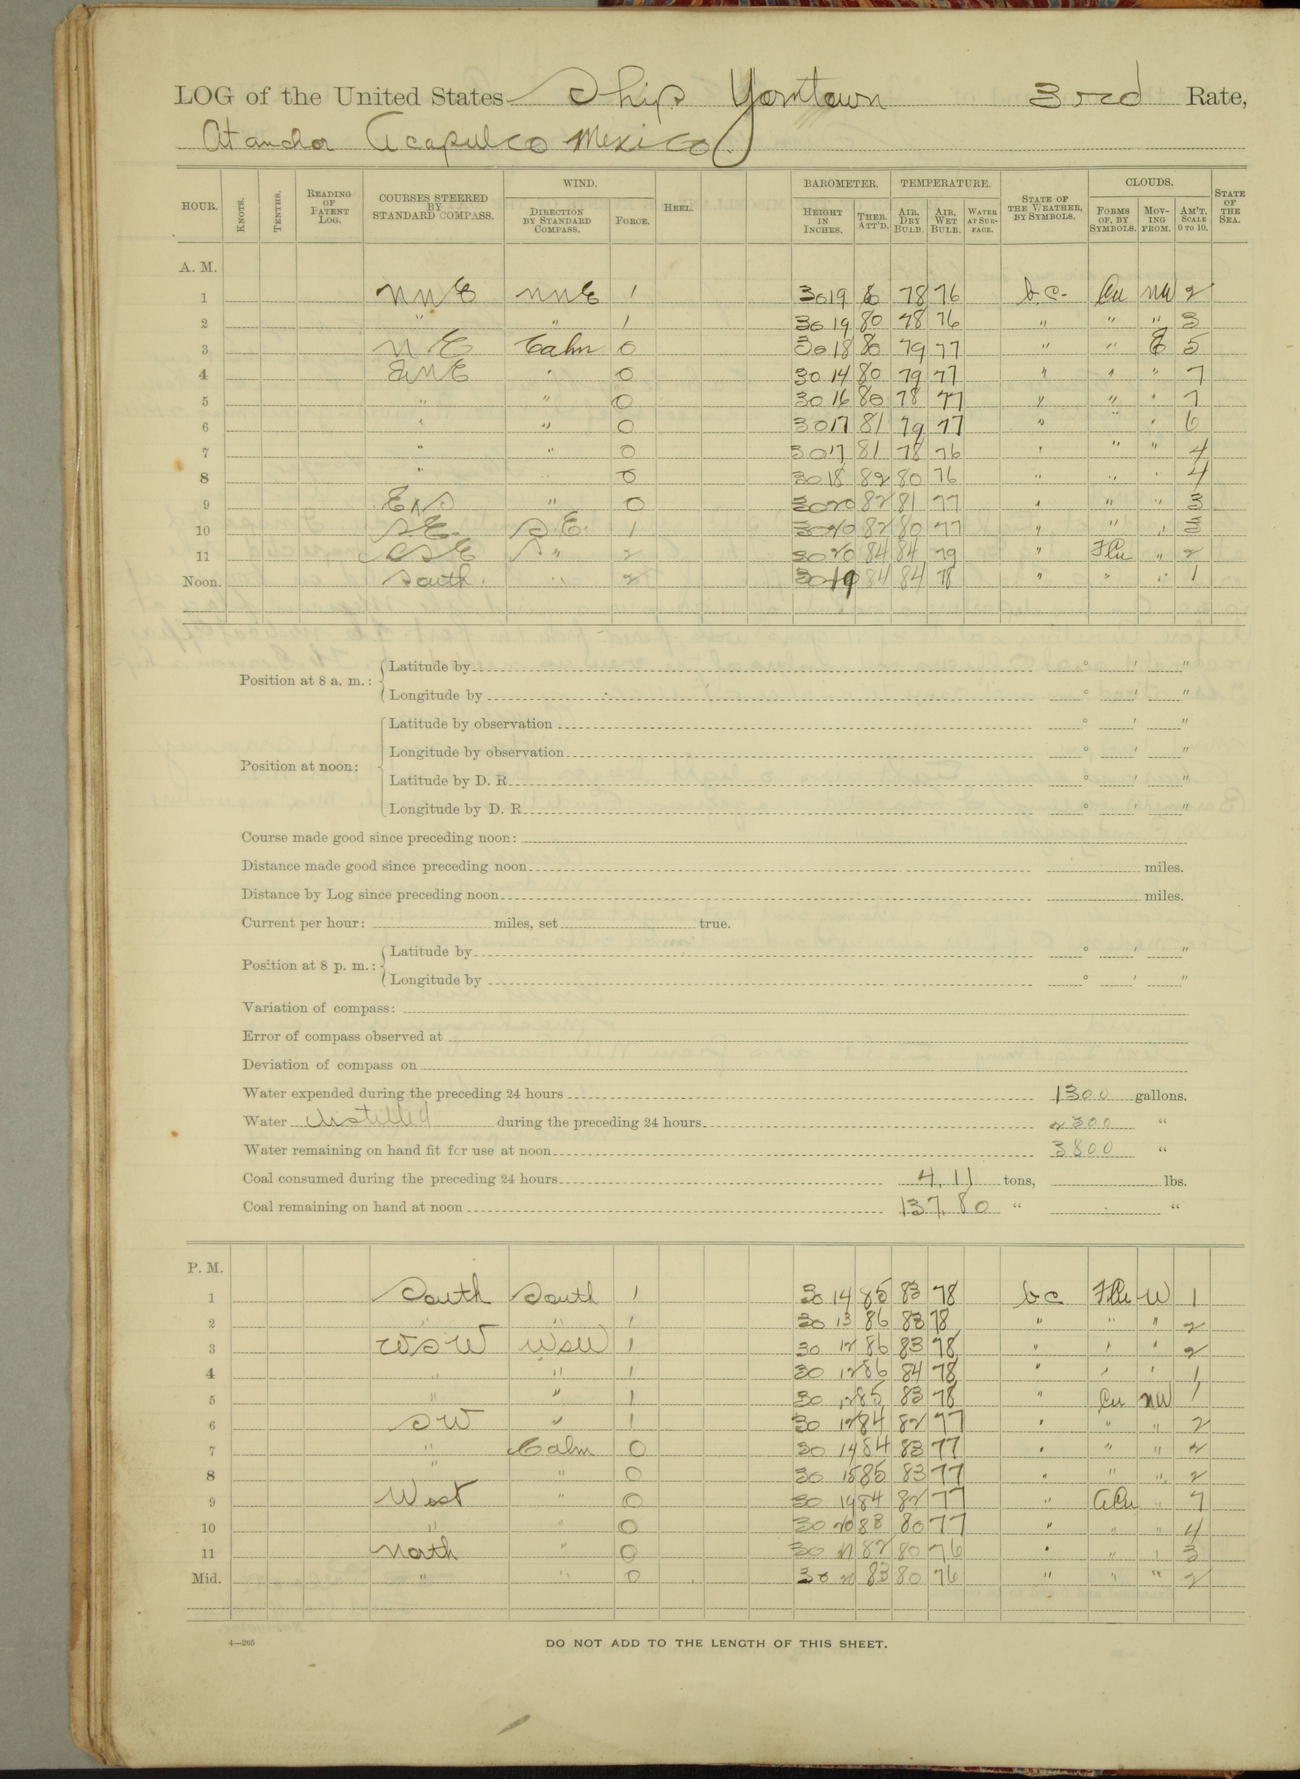 LOG of the United States Ship Yorktown 3rd Rate,
At anchor Acapulco Mexico.
HOUR. KNOTS. TENTHS. READING OF PATENT LOG. COURSES STEERED BY STANDARD COMPASS. WIND. DIRECTION BY STANDARD COMPASS. FORCE. HEEL. BAROMETER. HEIGHT IN INCHES. THER. ATT'D. TEMPERATURE. AIR, DRY BULB. AIR, WET BULB. WATER AT SURFACE. STATE OF THE WEATHER, BY SYMBOLS. CLOUDS. FORMS OF, BY SYMBOLS. MOVING FROM. AM'T, SCALE 0 TO 10. STATE OF THE SEA.
A. M.
1 NNE NNE 1 30 19 80 78 76 b.c. Cu NW 2
2 " " 1 30 19 80 78 76 " " " 3
3 NE Calm 0 30 18 80 79 77 " " E 5
4 ENE " 0 30 14 80 79 77 " " " 7
5 " " 0 30 16 80 78 77 " " " 7
6 " " 0 30 17 81 79 77 " " " 6
7 " " 0 30 17 81 78 76 " " " 4
8 " " 0 30 18 82 80 76 " " " 4
9 ExS " 0 30 20 82 81 77 " " " 3
10 SE. SE. 1 30 20 82 80 77 " " " 3
11 SSE S " 2 30 20 84 84 79 " F Cu " 2
Noon. South. " 2 30 19 84 84 78 " " " 1
Position at 8 a. m.: Latitude by ° ′ ″
Longitude by ° ′ ″
Position at noon: Latitude by observation ° ′ ″
Longitude by observation ° ′ ″
Latitude by D. R. ° ′ ″
Longitude by D. R. ° ′ ″
Course made good since preceding noon:
Distance made good since preceding noon miles.
Distance by Log since preceding noon miles.
Current per hour: miles, set true.
Position at 8 p. m.: Latitude by ° ′ ″
Longitude by ° ′ ″
Variation of compass:
Error of compass observed at
Deviation of compass on
Water expended during the preceding 24 hours 1300 gallons.
Water distilled during the preceding 24 hours 2300 "
Water remaining on hand fit for use at noon 3800 "
Coal consumed during the preceding 24 hours 4.11 tons, lbs.
Coal remaining on hand at noon 137.80 " "
P. M.
1 South South 1 30 14 85 83 78 bc F Cu W 1
2 " " 1 30 13 86 83 78 " " " 2
3 WSW WSW 1 30 12 86 83 78 " " " 2
4 " " 1 30 12 86 84 78 " " " 1
5 " " 1 30 12 85 83 78 " Cu NW 1
6 SW " 1 30 12 84 82 77 " " " 2
7 " Calm 0 30 14 84 83 77 " " " 2
8 " " 0 30 15 85 83 77 " " " 2
9 West " 0 30 19 84 82 77 " A Cu " 7
10 " " 0 30 20 83 80 77 " " " 4
11 North " 0 30 21 82 80 76 " " " 3
Mid. " " 0 30 20 83 80 76 " " " 2
4—265
DO NOT ADD TO THE LENGTH OF THIS SHEET.